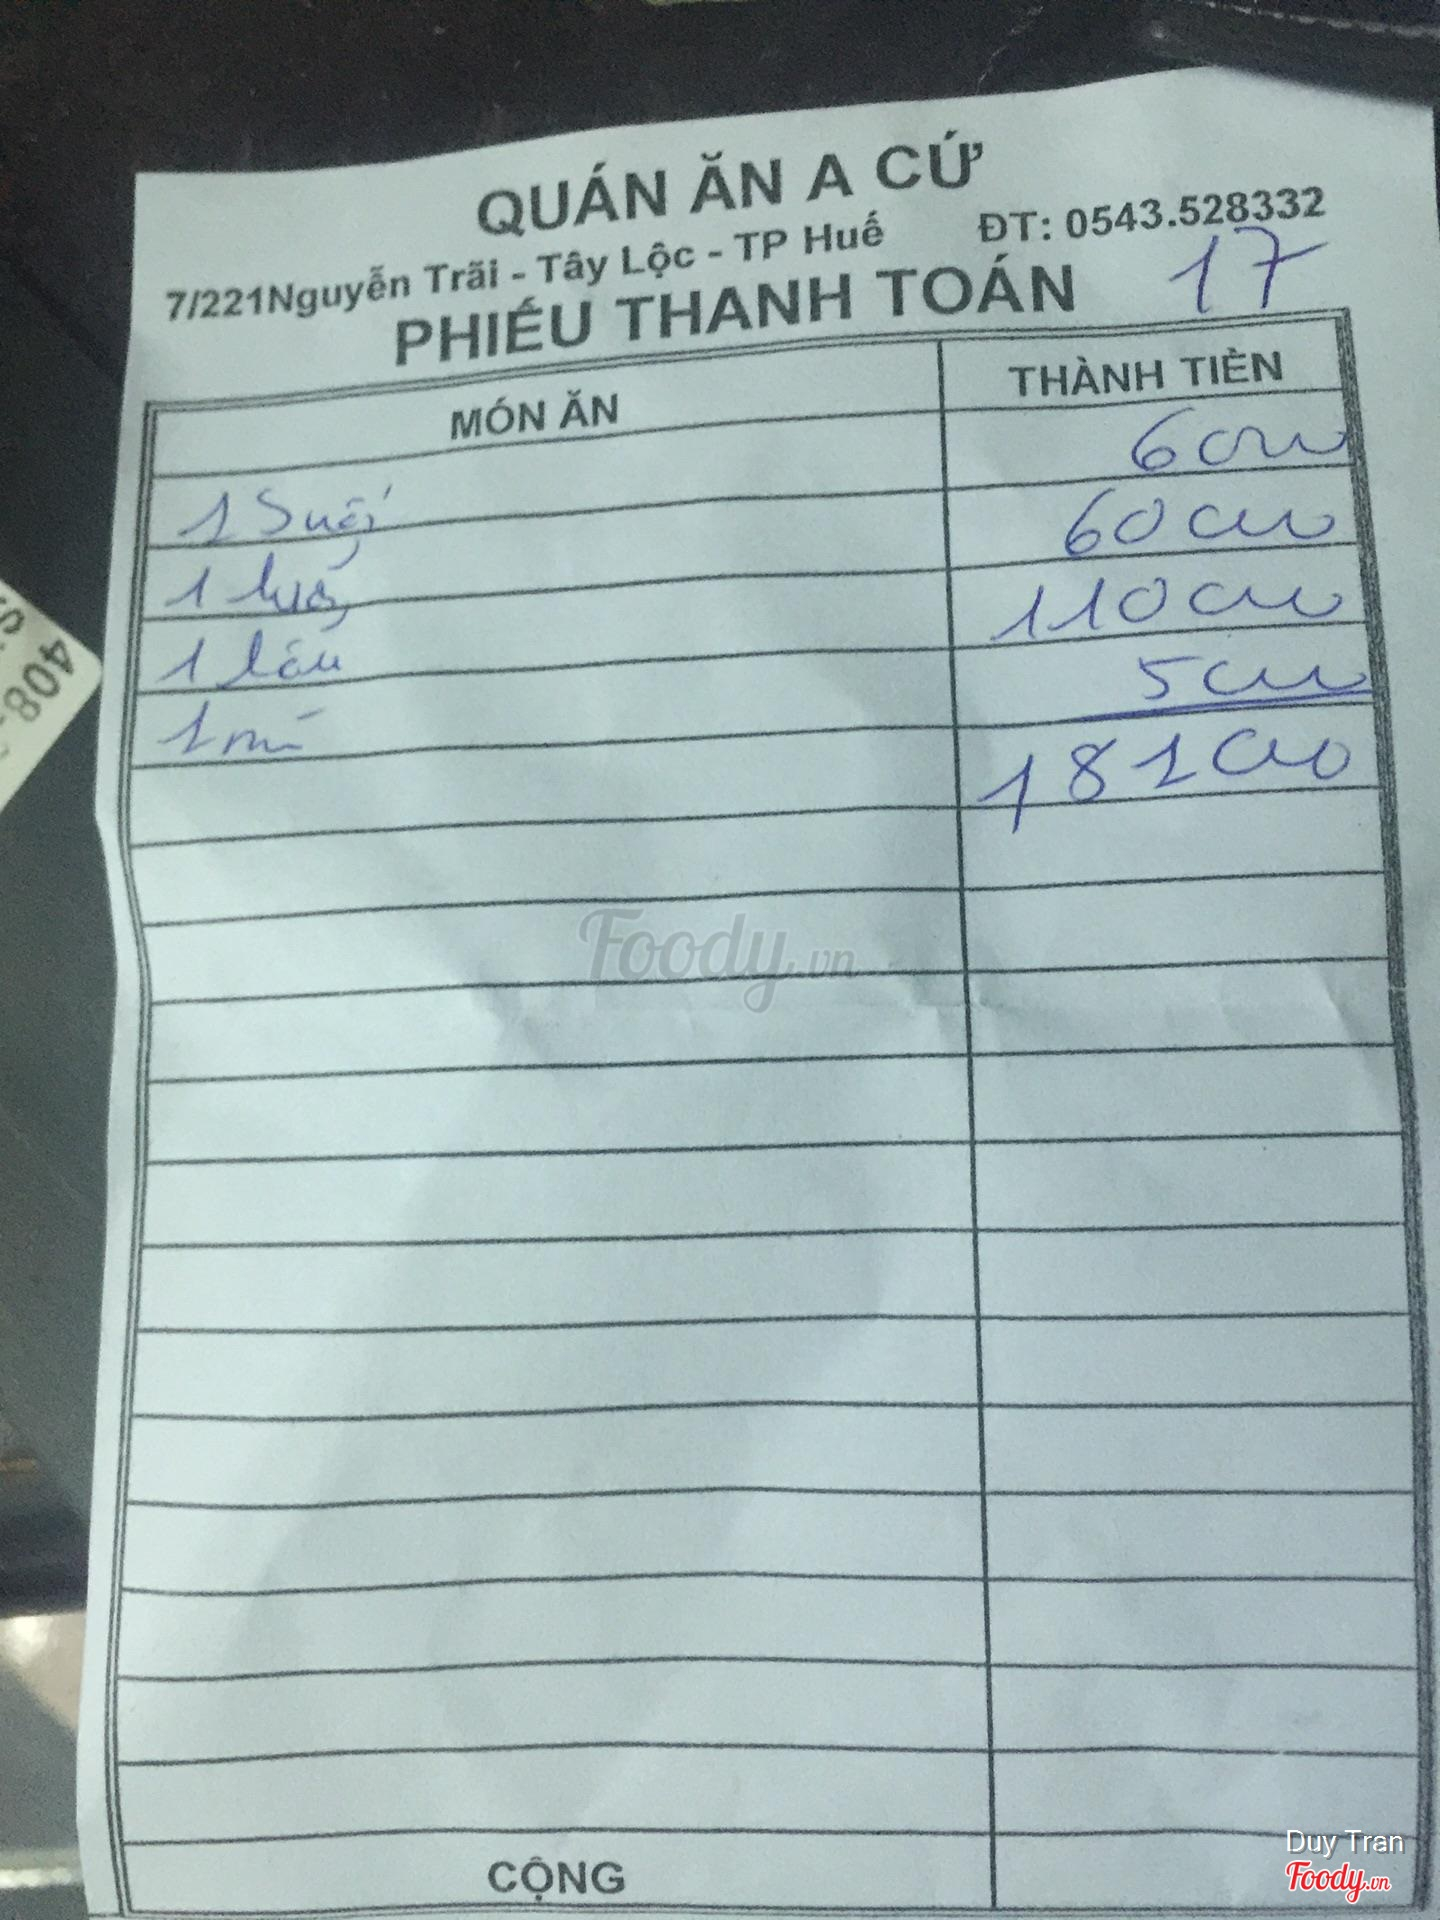 QUÁN ĂN A CỨ
7/221Nguyễn Trãi - Tây Lộc - TP Huế ĐT: 0543.528332
PHIẾU THANH TOÁN 17
MÓN ĂN THÀNH TIỀN
1 Suối 6000
1 60000
1 lẩu 110000
1 mì 5000
181000
Foody.vn
CỘNG
408
Duy Tran
Foody.vn